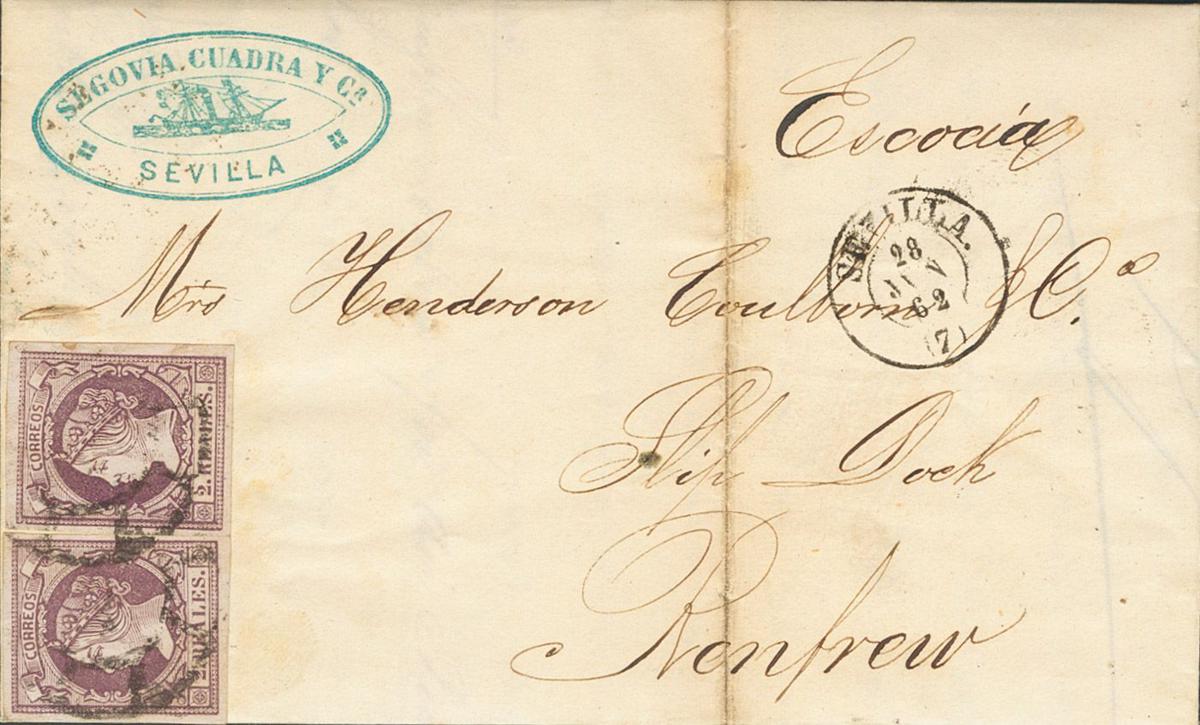 SEGOVIA, CUADRA Y Cª
SEVILLA
Escocia
SEVILLA.
28
62
(7)
Mrs Henderson Coulborn & Cº.
Slip Dock
Renfrew
CORREOS
2. REALES.
CORREOS
2. REALES.